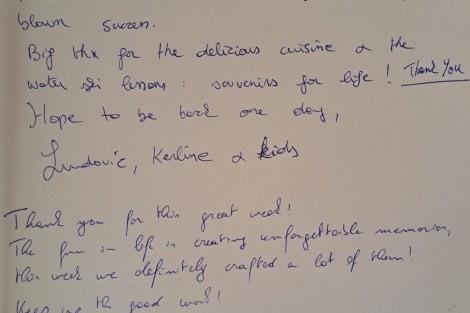 blown
Big thx for the delicious cuisine & the
water ski lessons : souvenirs for life ! Thank You
Hope to be back one day,
Ludovic, Kerline & kids
Thank you for this great week!
The fun in life is creating unforgettable memories,
this week we definitely crafted a lot of them!
Keep up the good work!